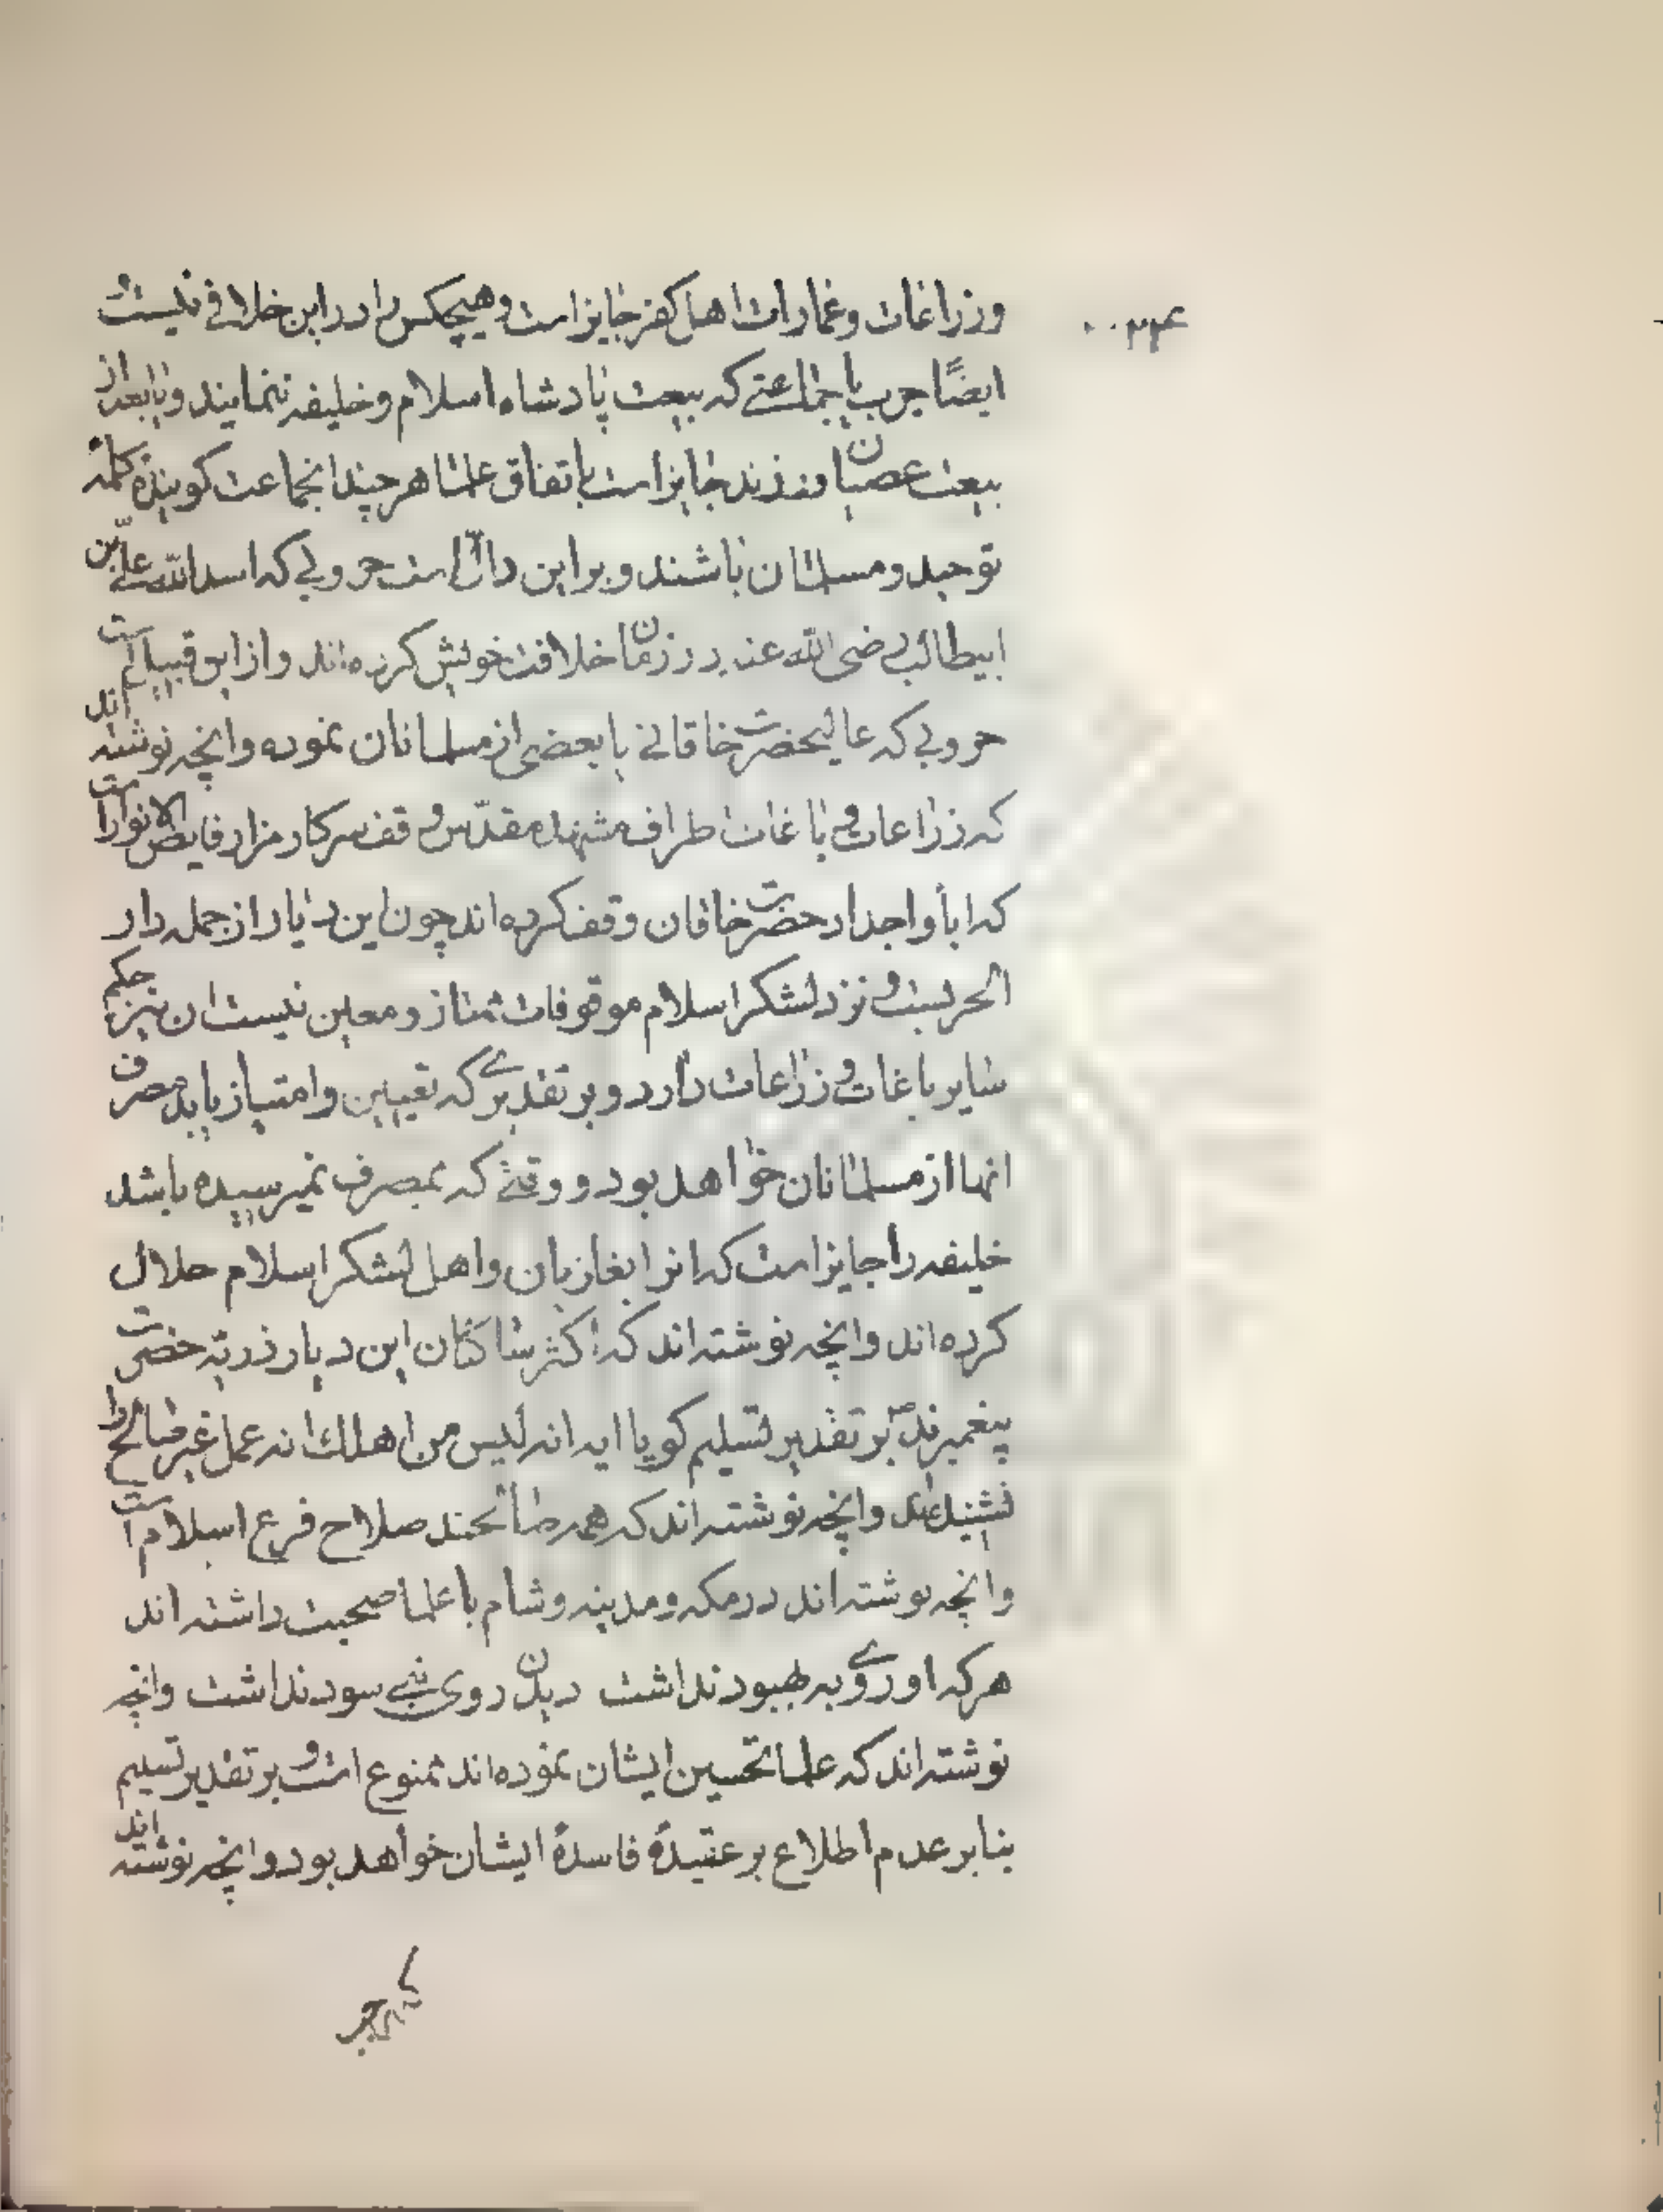 وزراعات وعمارات اهل کفر جایز است و هیچکس را در این خلافی نیست و
ایضًا حرب با جماعتی که بیعت پادشاه اسلام و خلیفه ننمایند و یا بعد از
بیعت عصیان ورزند جایز است باتفاق علما هر چند انجماعت کوینده کلمه
توحید و مسلمان باشند و بر این دالّ است حروبی که اسدالله علیّ بن
ابیطالب رضی الله عنه در زمان خلافت خویش کرده‌اند و از این قبیل است
حروبی که عالیحضرت خاقانی با بعضی از مسلمانان نموده وانچه نوشته اند
که زراعات و باغات اطراف مشهد مقدّس وقف سرکار مزار فایض الانوار است
که ابا واجداد حضرت خاقان وقف کرده‌اند چون این دیار از جمله دار
الحربست و نزد لشکر اسلام موقوفات ممتاز و معین نیست ان نیز حکم
سایر باغات و زراعات دارد و بر تقدیری که تعیین وامتیاز یابد مصرف
انها از مسلمانان خواهد بود و وقتی که بمصرف نمیرسیده باشد
خلیفه را جایز است که انرا بغازیان واهل لشکر اسلام حلال
کرده‌اند وانچه نوشته‌اند که اکثر ساکنان این دیار ذریّه حضرت
پیغمبرند ص بر تقدیر تسلیم کویا ایه انه لیس من اهلک انه عمل غیر صالح را
نشنیده‌اند وانچه نوشته‌اند که همه صالحند صلاح فرع اسلام است
وانچه نوشته‌اند در مکه و مدینه و شام با علما صحبت داشته‌اند
هرکه او روی به بهبود نداشت دیدن روی نبی سود نداشت وانچه
نوشته‌اند که علما تحسین ایشان نموده‌اند ممنوع است و بر تقدیر تسلیم
بنابر عدم اطلاع بر عقیدهٔ فاسدهٔ ایشان خواهد بود وانچه نوشته اند